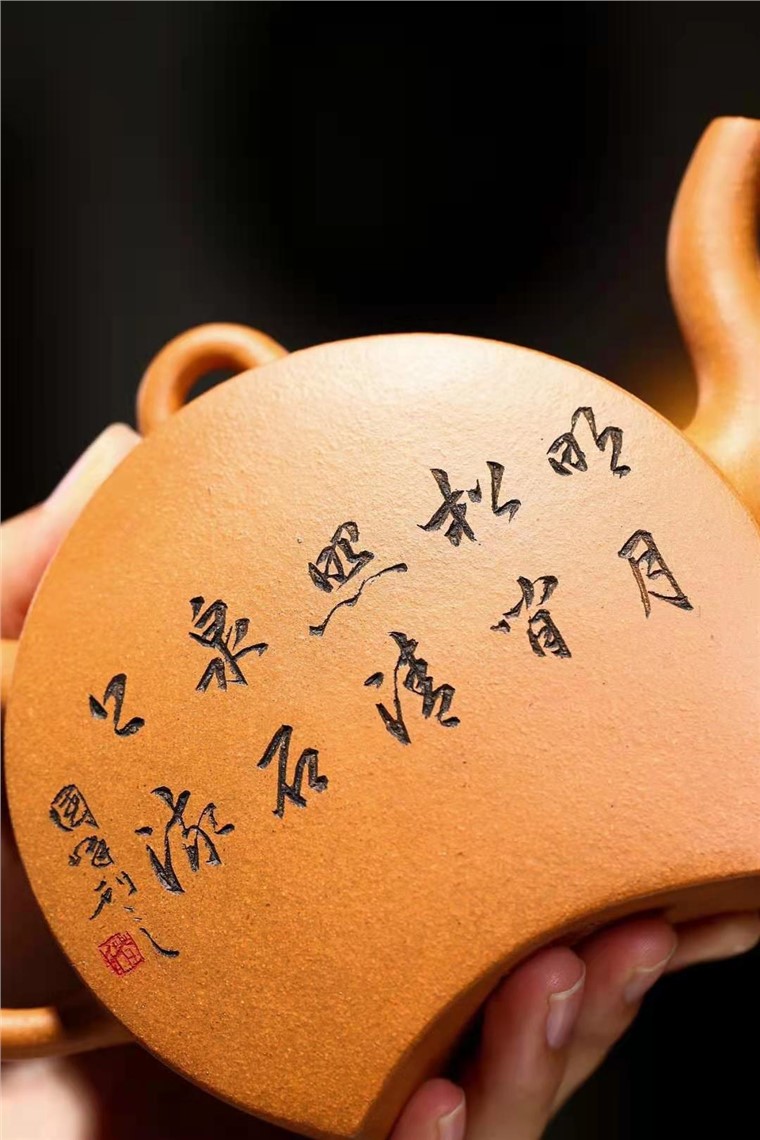 明月
松间
照清
泉石
上流
国刻